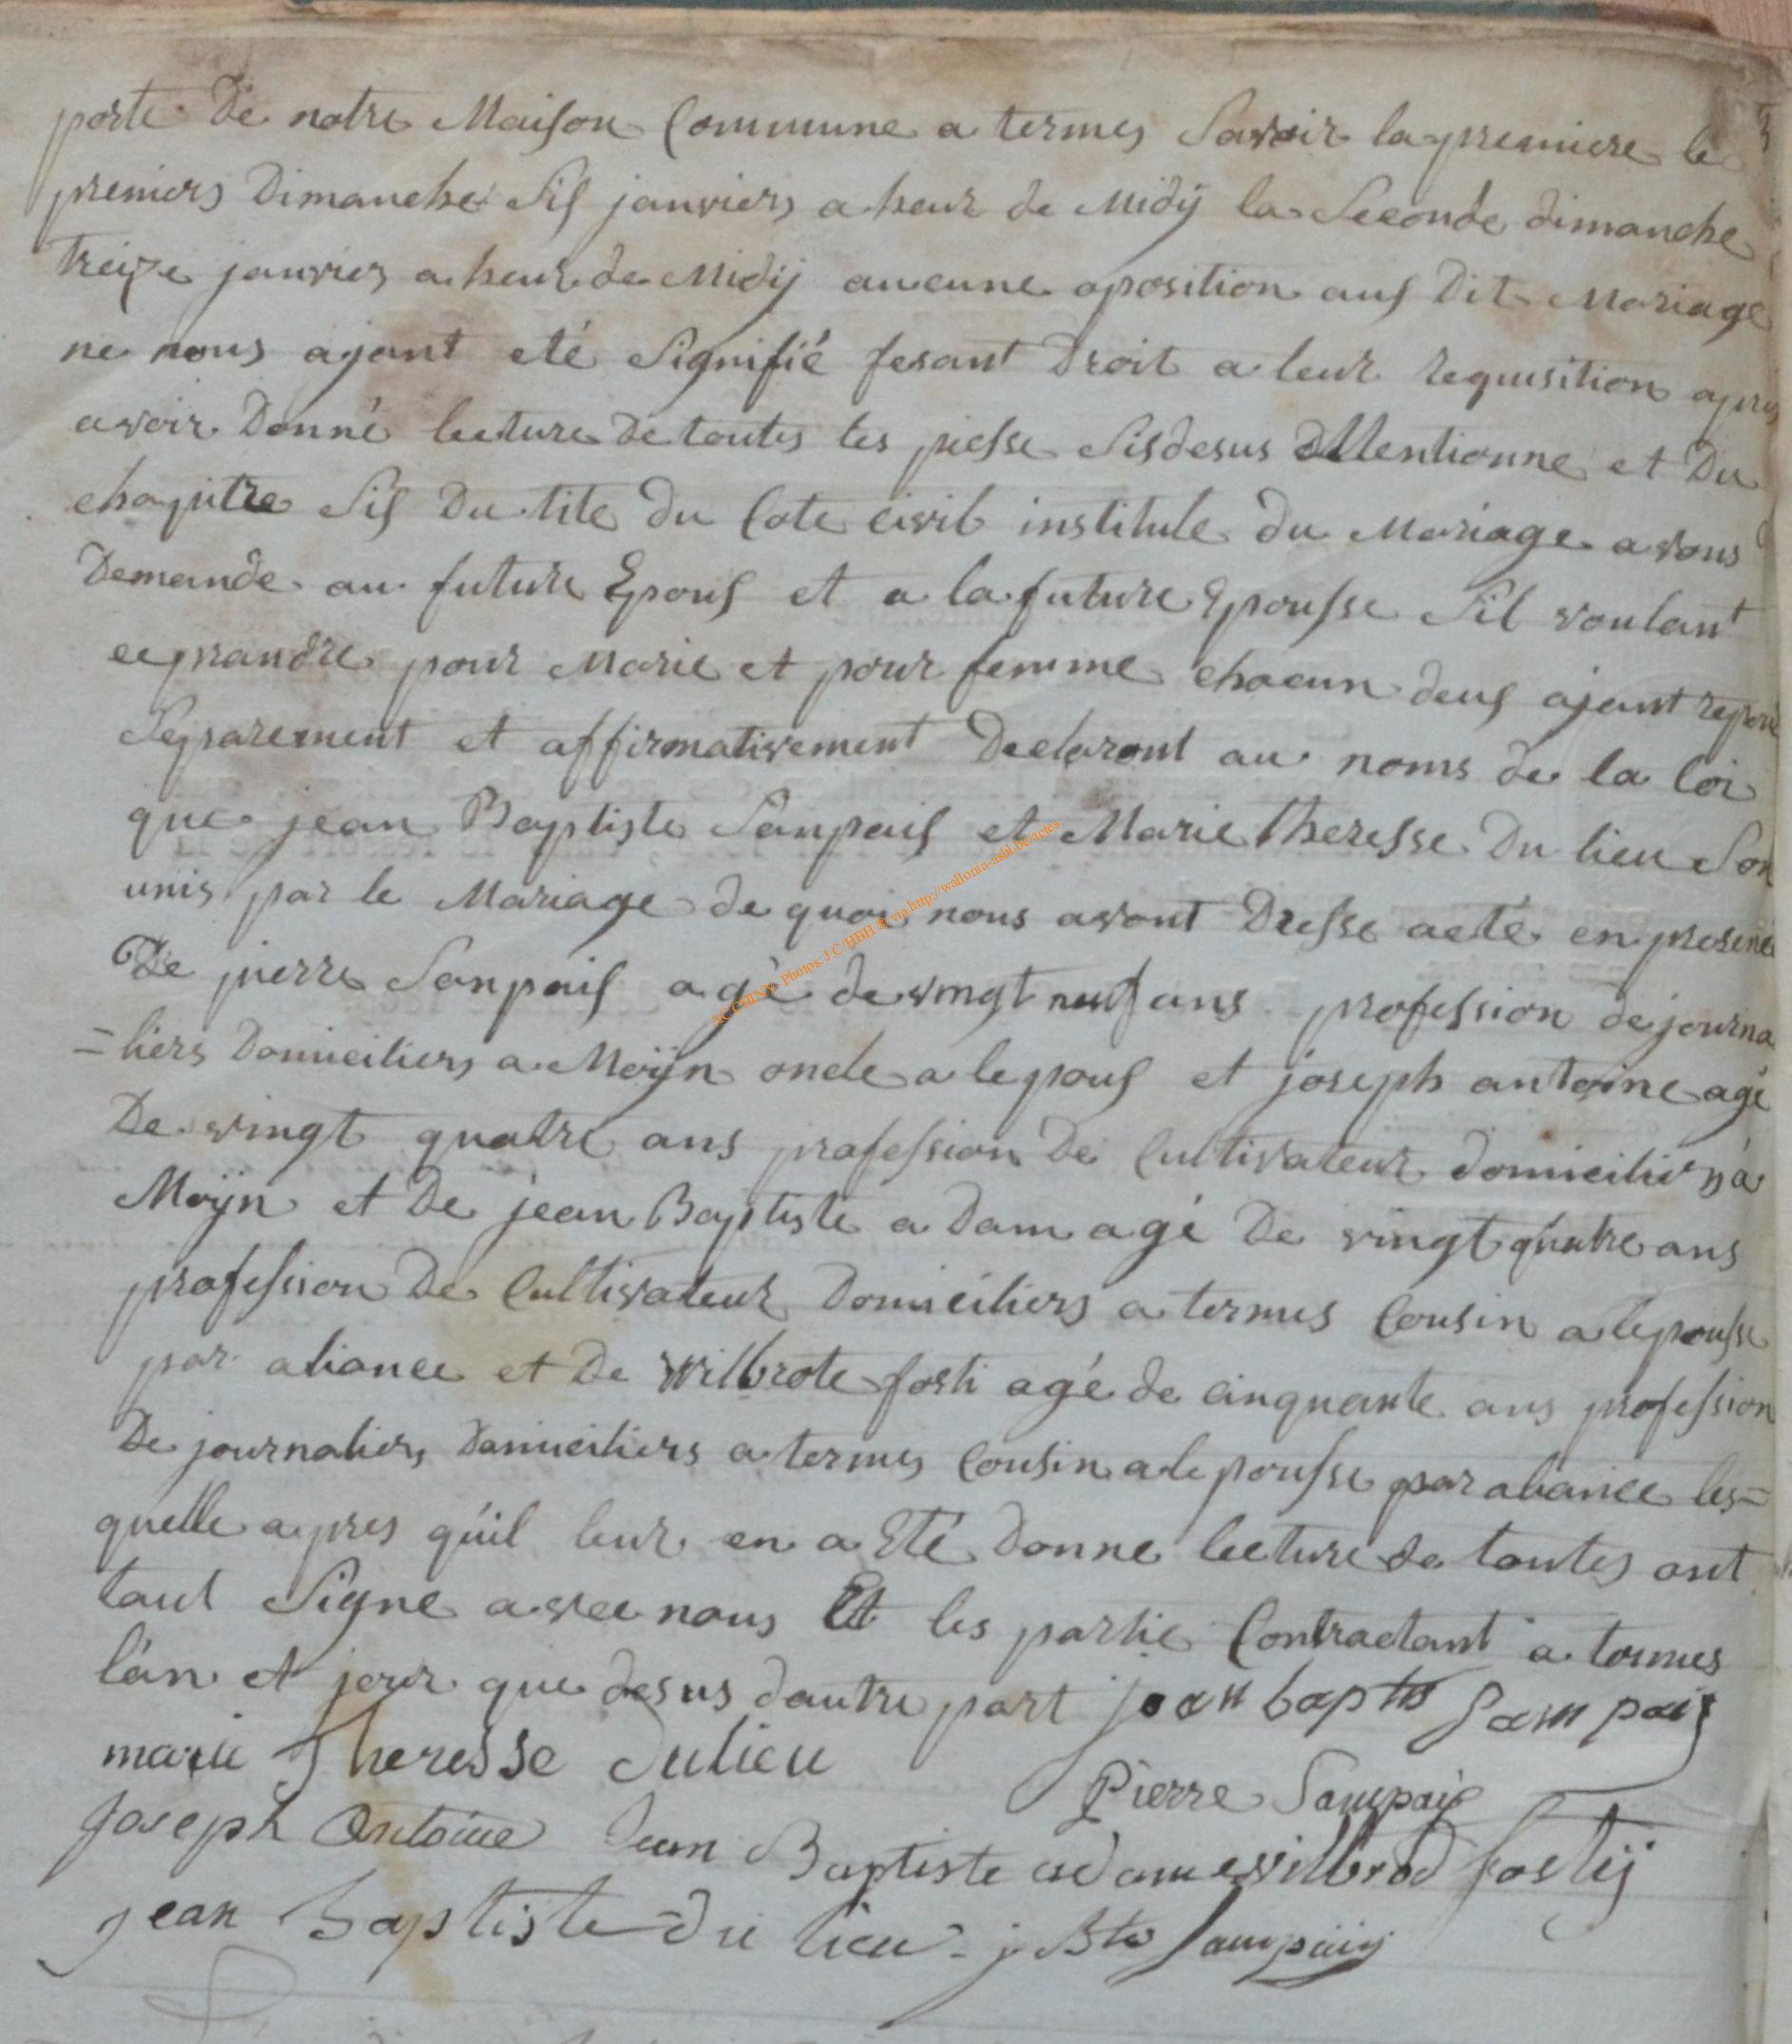 porte De notre Maison Commune a termes Savoir la premiere le
premiers Dimanche Sis janviers a heur de Midÿ la Seconde dimanche
treize janvier a heur de Midÿ aucune oposition aus Dit Mariage
ne nous ajant eté Signifié fesant Droit a leur requisition apres
avoir Donné lecture De toutes les piesse Sisdesus Mentionne et Du
chapitre Sis Du tite du Cote civil institule du Mariage avons
Demande au future Epous et a la future Epousse Sil voulant
ce prandre pour Marie et pour femme chacun deus ajant repon
Separement et affirmativement Declaront au noms de la loi
que jean Baptiste Sanpais et Marie theresse Du lieu Son
unis par le Mariage de quoi nous avont Dresse acté en presence
De pierre Sanpais agé de vingt neuf ans profession de journa
=liers Domiciliers a Moÿn oncle a lepous et joseph antoine agé
De vingt quatre ans profession De Cultivateur domicilier a
Moÿn et De jean Baptiste adam agé De vingt quatre ans
profession De Cultivateur Domiciliers a termes Cousin a lepousse
par aliance et De Wilbrote fosti agé de cinquante ans profession
De journalier, Domiciliers a termes Cousin a lepousse par aliance les=
quelle apres quil leur en a Eté donne lecture de toutes ont
tout Signe avec nous Et les partie Contractant a termes
lán et jour que desus dautre part jean bapte Sampais
marie Theresse dulieu
Pierre Sampais
Joseph Antoine Jean Baptiste adam willbrod fostÿ
jean Baptiste du lieu - j Bte Sampaiis
ACCHINY- Photos J.C/HBH ® via http://wallonia-asbl.be/actes